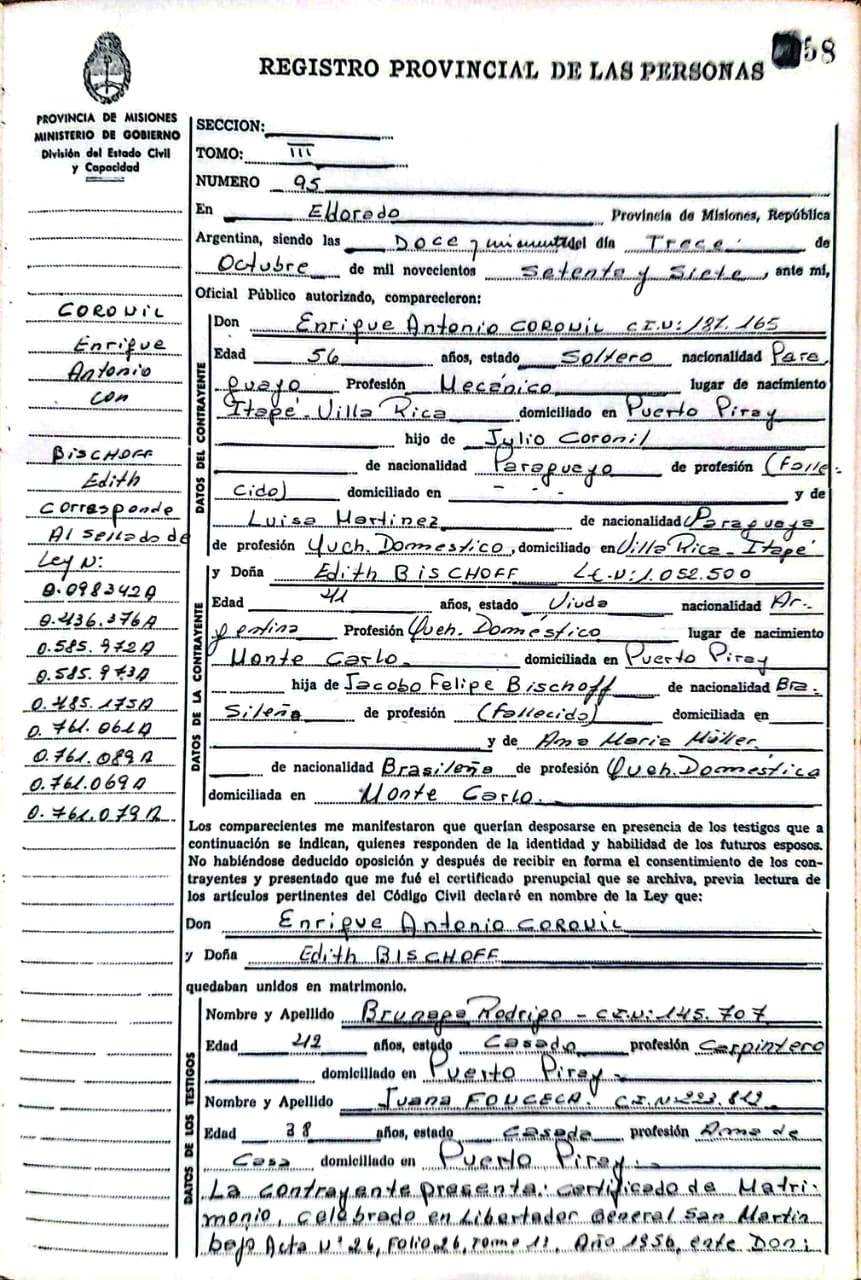 58
REGISTRO PROVINCIAL DE LAS PERSONAS
PROVINCIA DE MISIONES
MINISTERIO DE GOBIERNO
División del Estado Civil
y Capacidad
CORONIL
Enrique
Antonio
con
BISCHOFF
Edith
Corresponde
Al sellado de
Ley N:
0.098342A
0.436.376A
0.585.972A
0.585.973A
0.485.175A
0.761.061A
0.761.089A
0.761.069A
0.761.079A
SECCION:
TOMO: III
NUMERO 95
En Eldorado Provincia de Misiones, República
Argentina, siendo las Doce y del día Trece de
Octubre de mil novecientos Setenta y Siete, ante mi,
Oficial Público autorizado, comparecieron:
DATOS DEL CONTRAYENTE
Don Enrique Antonio CORONIL C.I.N: 187.165
Edad 56 años, estado Soltero nacionalidad Para
guayo Profesión Mecánico lugar de nacimiento
Itapé-Villa Rica domiciliado en Puerto Piray
hijo de Julio Coronil
de nacionalidad Paraguayo de profesión (Falle-
cido) domiciliado en - - - y de
Luisa Martinez de nacionalidad Paraguaya
de profesión Queh. Domestico, domiciliado en Villa Rica-Itapé
DATOS DE LA CONTRAYENTE
y Doña Edith BISCHOFF L.C.N: 1.052.500
Edad 41 años, estado Viuda nacionalidad Ar-
gentina Profesión Queh. Doméstico lugar de nacimiento
Monte Carlo. domiciliada en Puerto Piray
hija de Jacobo Felipe Bischoff de nacionalidad Bra-
sileña de profesión (Fallecido) domiciliada en
y de Ana Maria Müller.
de nacionalidad Brasileña de profesión Queh. Doméstica
domiciliada en Monte Carlo.
Los comparecientes me manifestaron que querían desposarse en presencia de los testigos que a
continuación se indican, quienes responden de la identidad y habilidad de los futuros esposos.
No habiéndose deducido oposición y después de recibir en forma el consentimiento de los con-
trayentes y presentado que me fué el certificado prenupcial que se archiva, previa lectura de
los artículos pertinentes del Código Civil declaró en nombre de la Ley que:
Don Enrique Antonio CORONIL
y Doña Edith BISCHOFF
quedaban unidos en matrimonio.
DATOS DE LOS TESTIGOS
Nombre y Apellido Rodrigo - C.I.N: 145.707
Edad 42 años, estado Casado profesión Carpintero
domiciliado en Puerto Piray-
Nombre y Apellido Juana C.I.N 223.812
Edad 38 años, estado Casada profesión Ama de
Casa domiciliado en Puerto Piray.-
La contrayente presenta: certificado de Matri-
monio, celebrado en Libertador General San Martin
bajo Acta Nº 26, Folio 26, Tomo 11, Año 1956, ante Don: